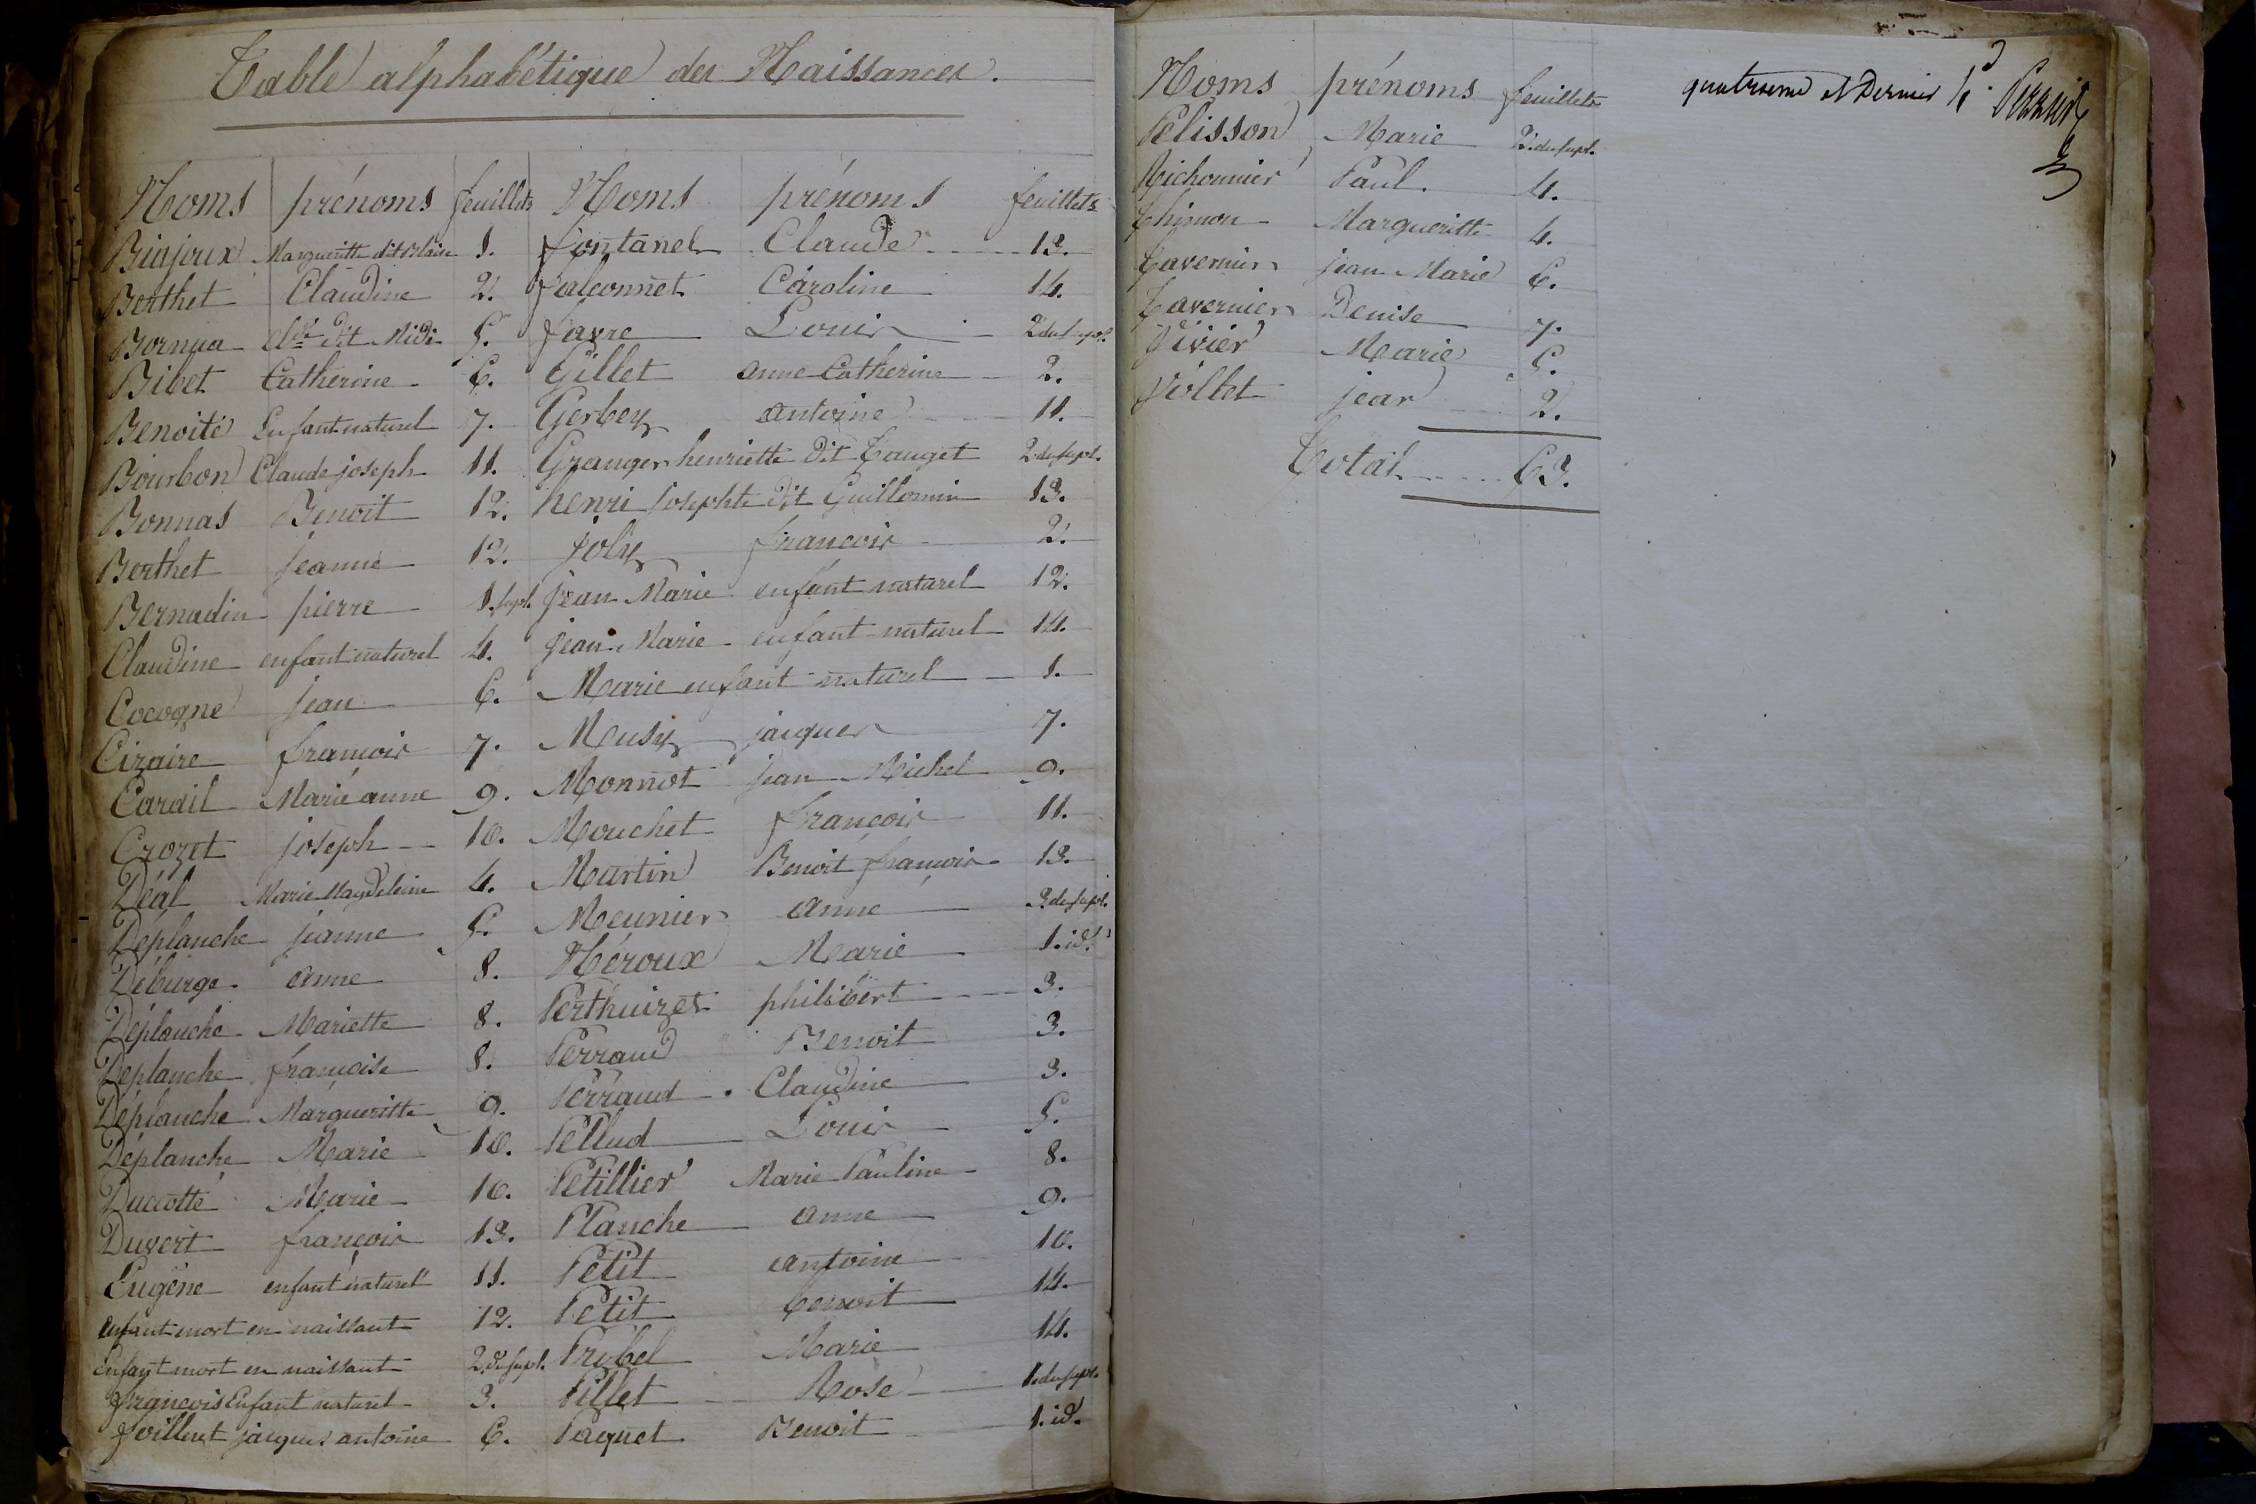 Table alphabétique des Naissances.
Noms prénoms feuillets
Biajoux Margueritte dit Blaise 1.
Berthet Claudine 2.
Bornua dit Midi 5.
Bibet Catherine 6.
Benoite Enfant naturel 7.
Bourbon Claude joseph 11.
Bonnas Benoit 12.
Berthet jeanne 12.
Bernadin pierre 1. supl.
Claudine enfant naturel 4.
Cocogne jean 6.
Ciraire francois 7.
Carail Marie anne 9.
Crozet joseph 10.
Déal Marie Magdeleine 4.
Déplanche jeanne 5.
Déburge anne 8.
Déplanche Mariette 8.
Déplanche francoise 8.
Déplanche Margueritte 9.
Déplanche Marie 10.
Ducotté Marie 10.
Duvert francois 13.
Eugène enfant naturel 11.
enfant mort en naissant 12.
Enfant mort en naissant 2. du supl.
francois Enfant naturel 3.
foilleret jacques antoine 6.
Noms prénoms feuillets
fontanel Claude 13.
falconnet Caroline 14.
favre Louis 2 du supl.
Gillet anne Catherine 2.
Gerbey antoine 11.
Granger henriette dit Tauget 2 du supl.
henri Josephte dit Guillomin 13.
joly francois 2.
jean Marie enfant naturel 12.
jean Marie enfant naturel 14.
Marie enfant naturel 1.
Musy jacques 7.
Monnot jean Michel 9.
Mouchet françois 11.
Martin Benoit francois 13.
Meunier anne 2 du supl.
Néroux Marie 1. id.
Perthuizet philibert 3.
Perraud Benoit 3.
Perraud Claudine 3.
Pellud Louis 5.
Petillier Marie Pauline 8.
Planche anne 9.
Petit antoine 10.
Petit benoit 14.
Probel Marie 14.
Pillet Rose 1. du supl.
Paquet Benoit 1. id.
Noms prénoms feuillets
Pelisson Marie 2. du supl.
Richonnier Paul. 4.
Thimon Margueritte 4.
Tavernier jean Marie 6.
Tavernier Denise 7.
Vivier Marie 5.
Vollet jean 2.
Total 63.
quatrieme et Dernier